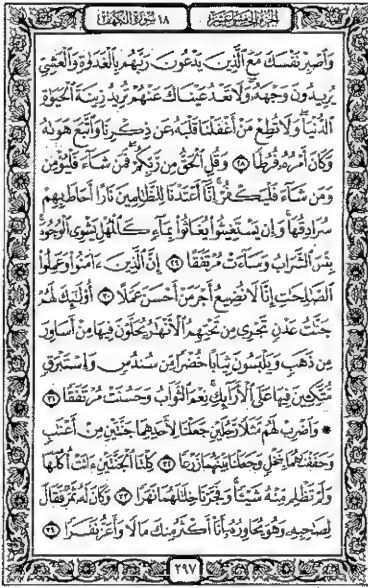 الجزء الخامس عشر ١٨ سورة الكهف
وَٱصْبِرْ نَفْسَكَ مَعَ ٱلَّذِينَ يَدْعُونَ رَبَّهُم بِٱلْغَدَوٰةِ وَٱلْعَشِىِّ
يُرِيدُونَ وَجْهَهُۥ وَلَا تَعْدُ عَيْنَاكَ عَنْهُمْ تُرِيدُ زِينَةَ ٱلْحَيَوٰةِ
ٱلدُّنْيَا وَلَا تُطِعْ مَنْ أَغْفَلْنَا قَلْبَهُۥ عَن ذِكْرِنَا وَٱتَّبَعَ هَوَىٰهُ
وَكَانَ أَمْرُهُۥ فُرُطًا ٢٨ وَقُلِ ٱلْحَقُّ مِن رَّبِّكُمْ فَمَن شَآءَ فَلْيُؤْمِن
وَمَن شَآءَ فَلْيَكْفُرْ إِنَّآ أَعْتَدْنَا لِلظَّٰلِمِينَ نَارًا أَحَاطَ بِهِمْ
سُرَادِقُهَا وَإِن يَسْتَغِيثُوا۟ يُغَاثُوا۟ بِمَآءٍ كَٱلْمُهْلِ يَشْوِى ٱلْوُجُوهَ
بِئْسَ ٱلشَّرَابُ وَسَآءَتْ مُرْتَفَقًا ٢٩ إِنَّ ٱلَّذِينَ ءَامَنُوا۟ وَعَمِلُوا۟
ٱلصَّٰلِحَٰتِ إِنَّا لَا نُضِيعُ أَجْرَ مَنْ أَحْسَنَ عَمَلًا ٣٠ أُو۟لَٰٓئِكَ لَهُمْ
جَنَّٰتُ عَدْنٍ تَجْرِى مِن تَحْتِهِمُ ٱلْأَنْهَٰرُ يُحَلَّوْنَ فِيهَا مِنْ أَسَاوِرَ
مِن ذَهَبٍ وَيَلْبَسُونَ ثِيَابًا خُضْرًا مِّن سُندُسٍ وَإِسْتَبْرَقٍ
مُّتَّكِـِٔينَ فِيهَا عَلَى ٱلْأَرَآئِكِ نِعْمَ ٱلثَّوَابُ وَحَسُنَتْ مُرْتَفَقًا ٣١
* وَٱضْرِبْ لَهُم مَّثَلًا رَّجُلَيْنِ جَعَلْنَا لِأَحَدِهِمَا جَنَّتَيْنِ مِنْ أَعْنَٰبٍ
وَحَفَفْنَٰهُمَا بِنَخْلٍ وَجَعَلْنَا بَيْنَهُمَا زَرْعًا ٣٢ كِلْتَا ٱلْجَنَّتَيْنِ ءَاتَتْ أُكُلَهَا
وَلَمْ تَظْلِم مِّنْهُ شَيْـًٔا وَفَجَّرْنَا خِلَٰلَهُمَا نَهَرًا ٣٣ وَكَانَ لَهُۥ ثَمَرٌ فَقَالَ
لِصَٰحِبِهِۦ وَهُوَ يُحَاوِرُهُۥٓ أَنَا۠ أَكْثَرُ مِنكَ مَالًا وَأَعَزُّ نَفَرًا ٣٤
٢٩٧